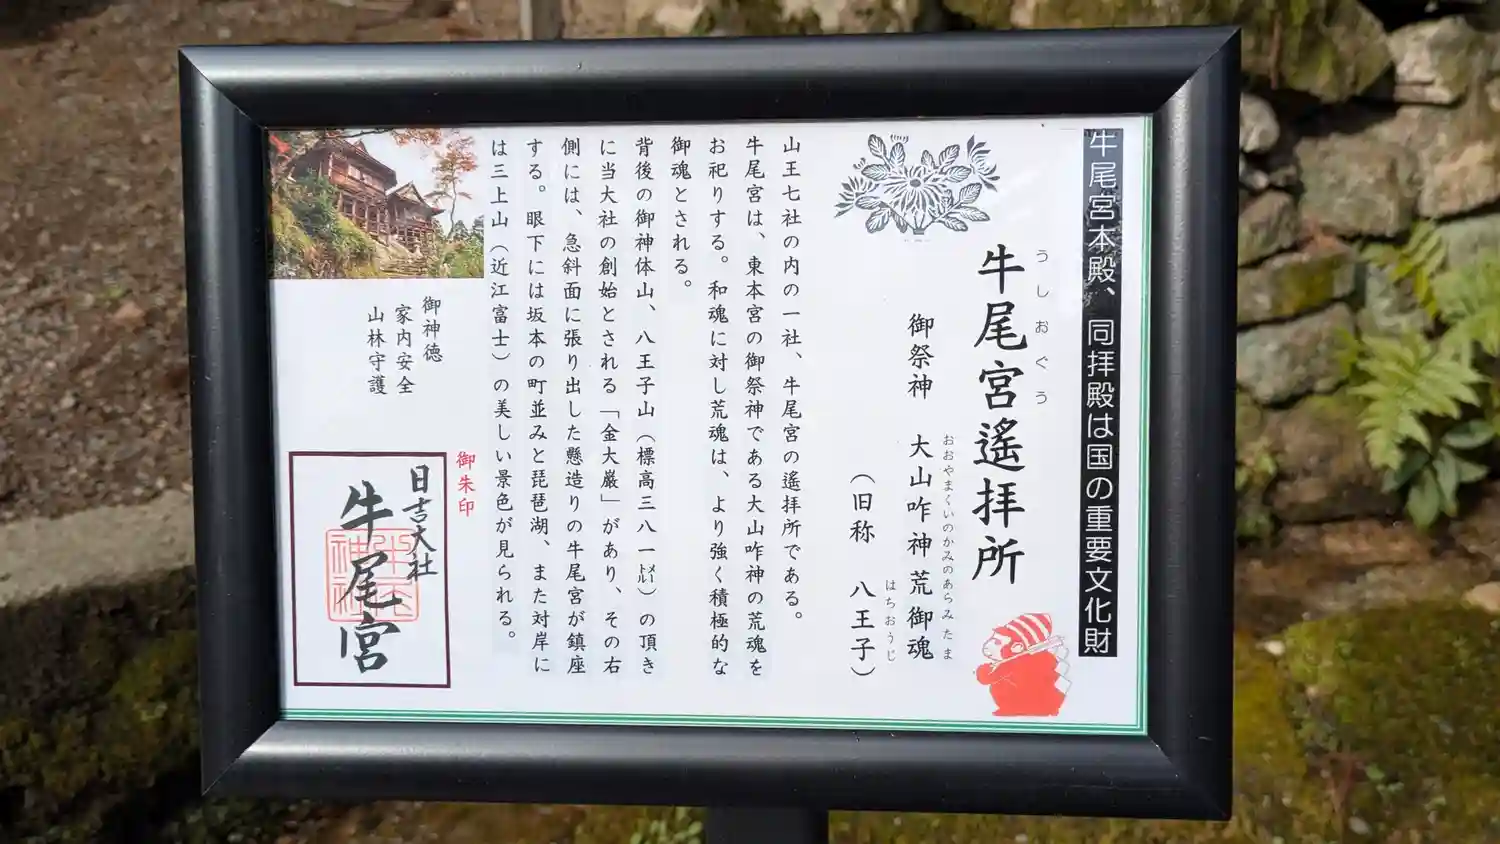 牛尾宮本殿、同拝殿は国の重要文化財
うしおぐう
牛尾宮遙拝所
おおやまくいのかみのあらみたま
御祭神 大山咋神荒御魂
はちおうじ
（旧称 八王子）
山王七社の内の一社、牛尾宮の遙拝所である。
牛尾宮は、東本宮の御祭神である大山咋神の荒魂を
お祀りする。和魂に対し荒魂は、より強く積極的な
御魂とされる。
背後の御神体山、八王子山（標高三八一㍍）の頂き
に当大社の創始とされる「金大巌」があり、その右
側には、急斜面に張り出した懸造りの牛尾宮が鎮座
する。眼下には坂本の町並みと琵琶湖、また対岸に
は三上山（近江富士）の美しい景色が見られる。
御神徳
家内安全
山林守護
御朱印
日吉大社
牛尾宮